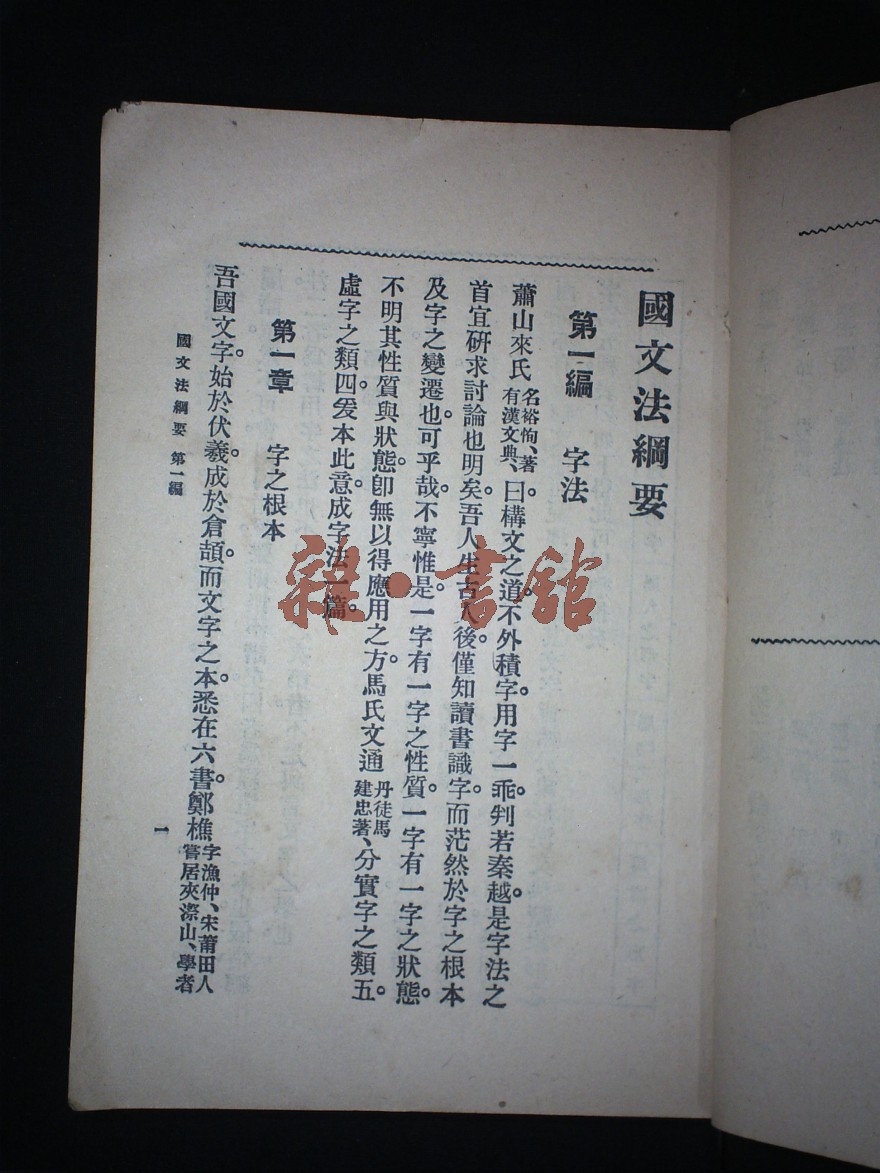 國文法綱要
第一編　字法
蕭山來氏名裕恂、著有漢文典、曰構文之道。不外積字。用字一乖。判若秦越。是字法之
首宜研求討論也明矣。吾人生古人後。僅知讀書識字。而茫然於字之根本
及字之變遷也可乎哉。不寧惟是。一字有一字之性質。一字有一字之狀態。
不明其性質與狀態。卽無以得應用之方。馬氏文通丹徒馬建忠著、分實字之類五。
虛字之類四。爰本此意。成字法一篇。
第一章　字之根本
吾國文字。始於伏羲。成於倉頡。而文字之本。悉在六書。鄭樵字漁仲、宋莆田人嘗居夾漈山、學者
國文法綱要　第一編
一
雜·書館